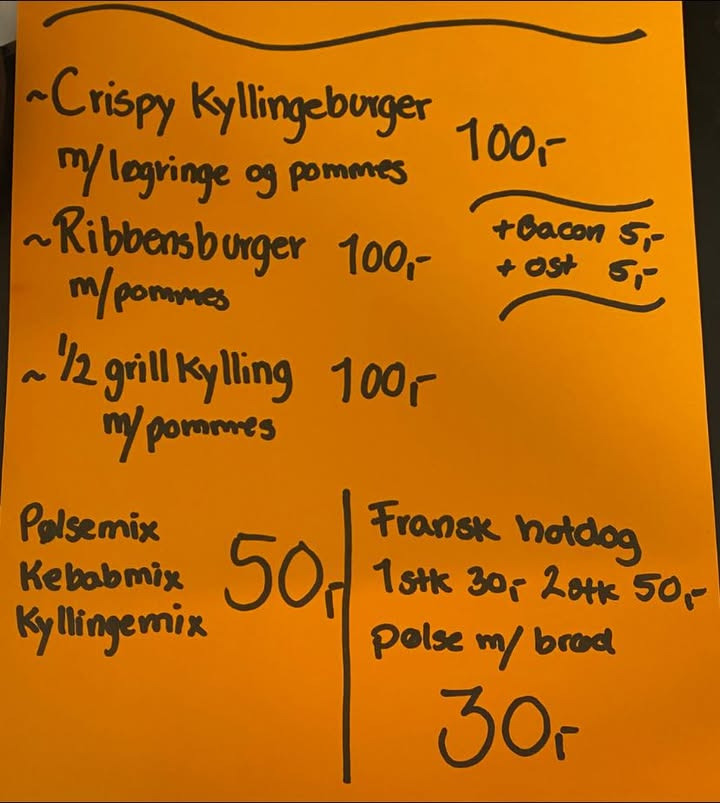 ~Crispy Kyllingeburger 100,-
m/løgringe og pommes
~Ribbensburger 100,-
m/pommes
+Bacon 5,-
+ Ost 5,-
~ 1/2 grill Kylling 100,-
m/pommes
Pølsemix
Kebabmix
Kyllingemix
50,-
Fransk hotdog
1 stk 30,- 2 stk 50,-
Pølse m/ brød
30,-